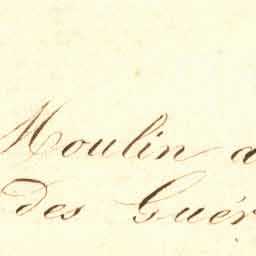 Moulin a
des Guér